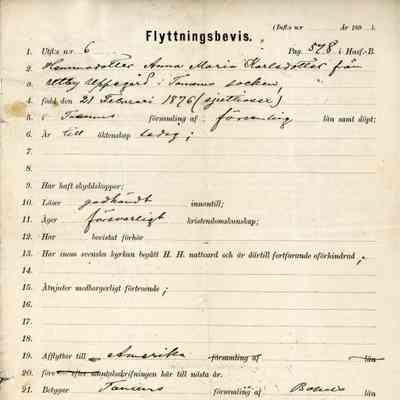 (Infl:s n:r År 189 .).
Flyttningsbevis.
1. Utfl:s n:r 6 Pag. 578 i Husf.-B.
2. Hemmadotter Anna Maria Karlsdotter från
3. Uppegård i Tanums socken,
4. född den 21 Februari 1876 (sjuttiosex)
5. i Tanums församling af län samt döpt;
6. Är till äktenskap ledig;
7.
8.
9. Har haft skyddskoppor;
10. Läser godkändt innantill;
11. Äger försvarligt kristendomskunskap;
12. Har bevistat förhör
13. Har inom svenska kyrkan begått H. H. nattvard och är därtill fortfarande oförhindrad;
14.
15. Åtnjuter medborgerligt förtroende;
16.
17.
18.
19. Afflyttar till Amerika församling af län
20. före efter mantalsskrifningen här till nästa år.
21. Betygar Tanums församling af Bohus